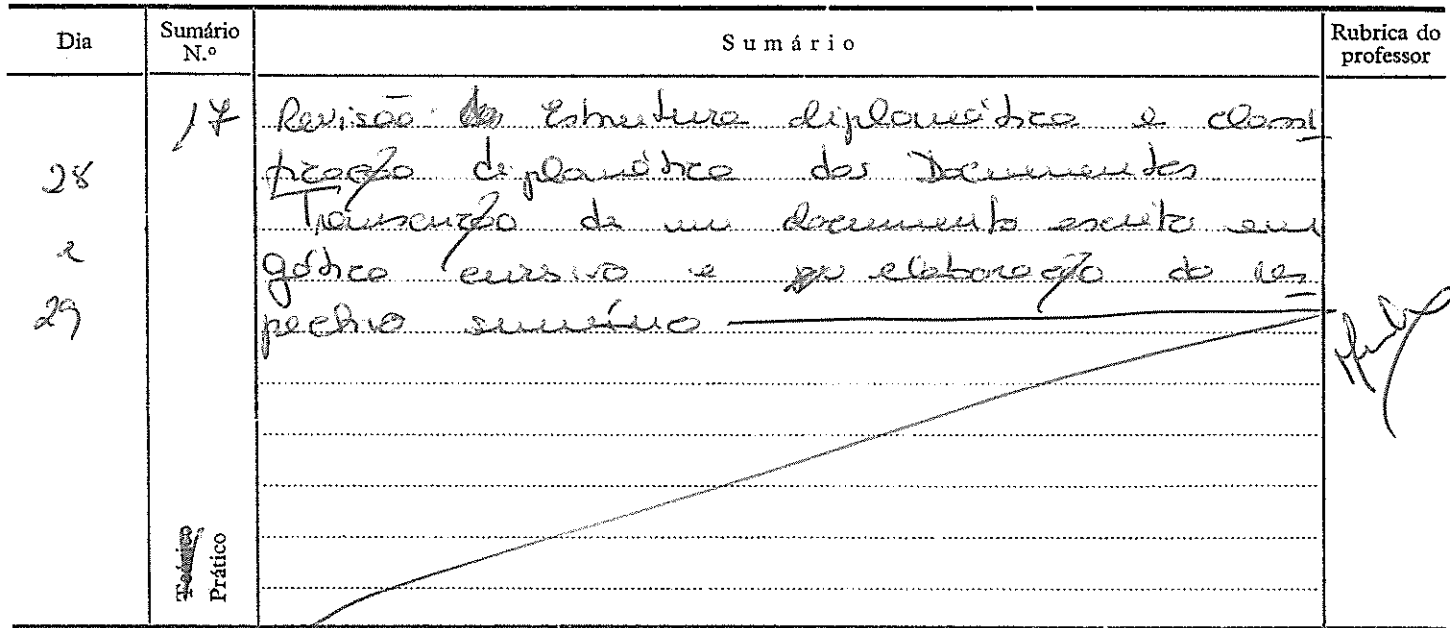 Dia Sumário N.º Sumário Rubrica do professor
17 Revisão: Estrutura diplomática e classi
28 ficação diplomática dos Documentos
Transcrição de um documento escrito em
e gótico cursivo e elaboração do res
29 pectivo sumário
Teórico
Prático